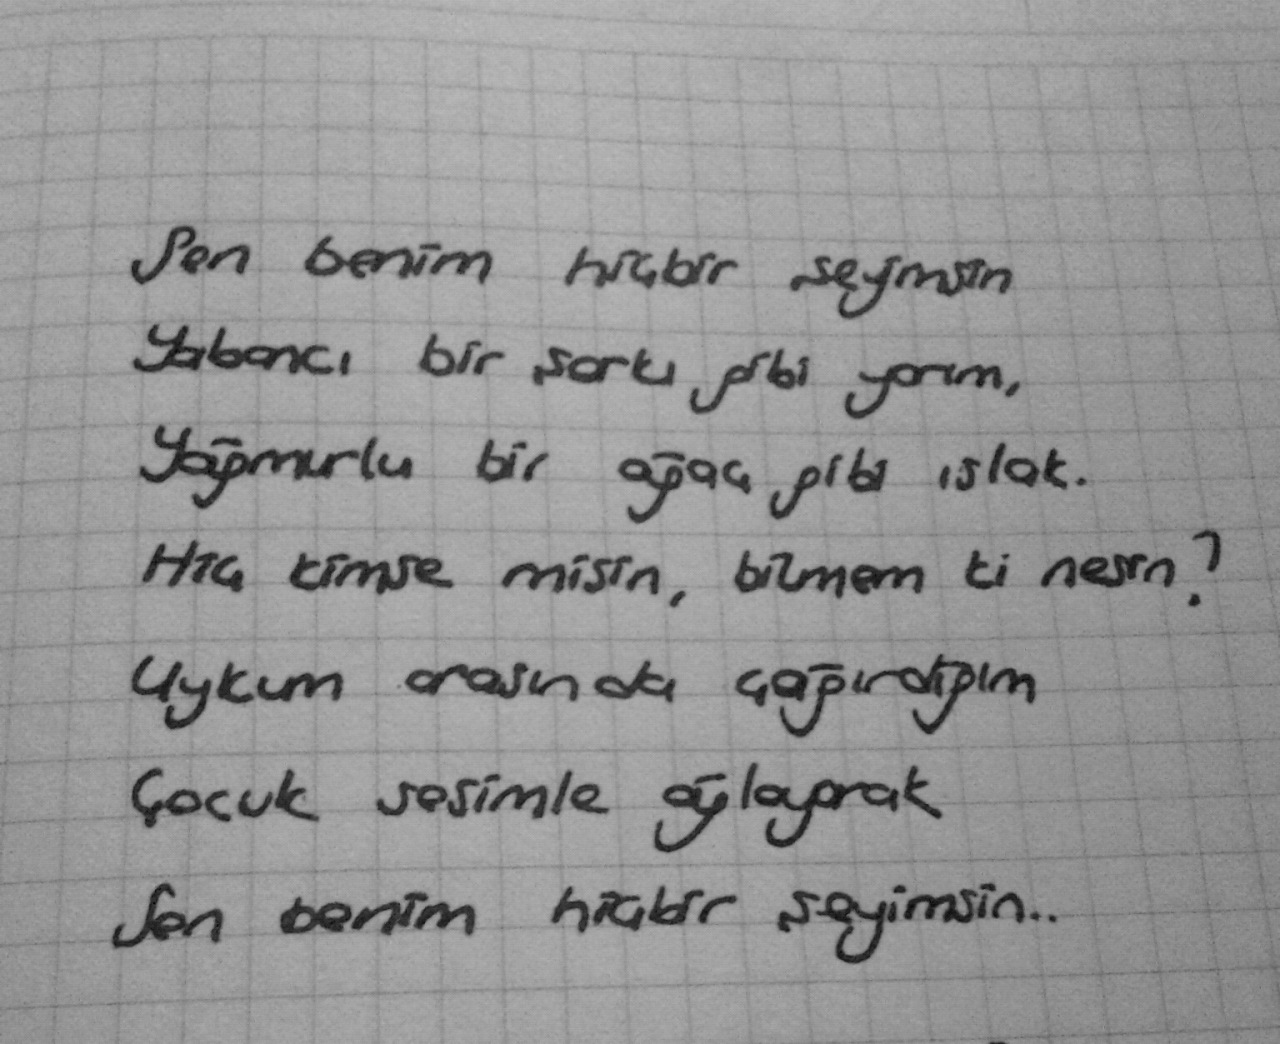 Sen benim hiçbir şeyimsin
Yabancı bir şarkı gibi yarım,
Yağmurlu bir ağaç gibi ıslak.
Hiç kimse misin, bilmem ki nesin?
Uykum arasında çağırdığım
Çocuk sesimle ağlayarak
Sen benim hiçbir şeyimsin..